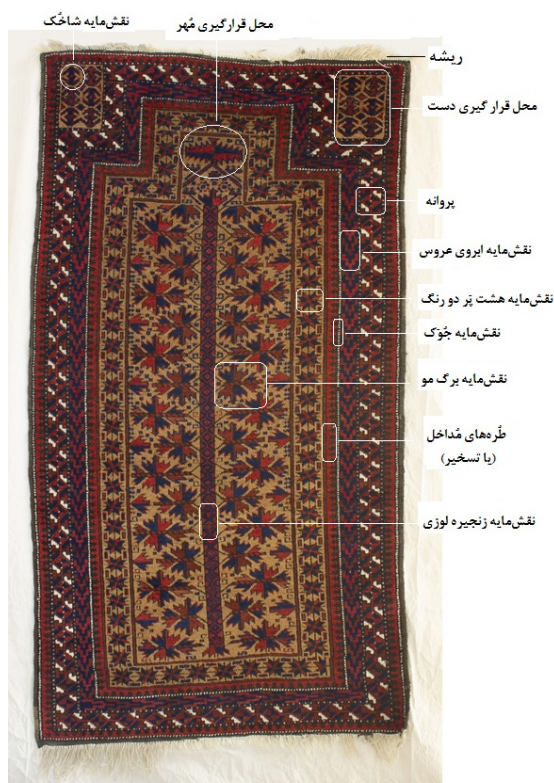 نقش‌مایه شاخُک
محل قرارگیری مُهر
ریشه
محل قرار گیری دست
پروانه
نقش‌مایه ابروی عروس
نقش‌مایه هشت پَر دو رنگ
نقش‌مایه جُوَک
نقش‌مایه برگ مو
طُره‌های مُداخل
(یا تسخیر)
نقش‌مایه زنجیره لوزی